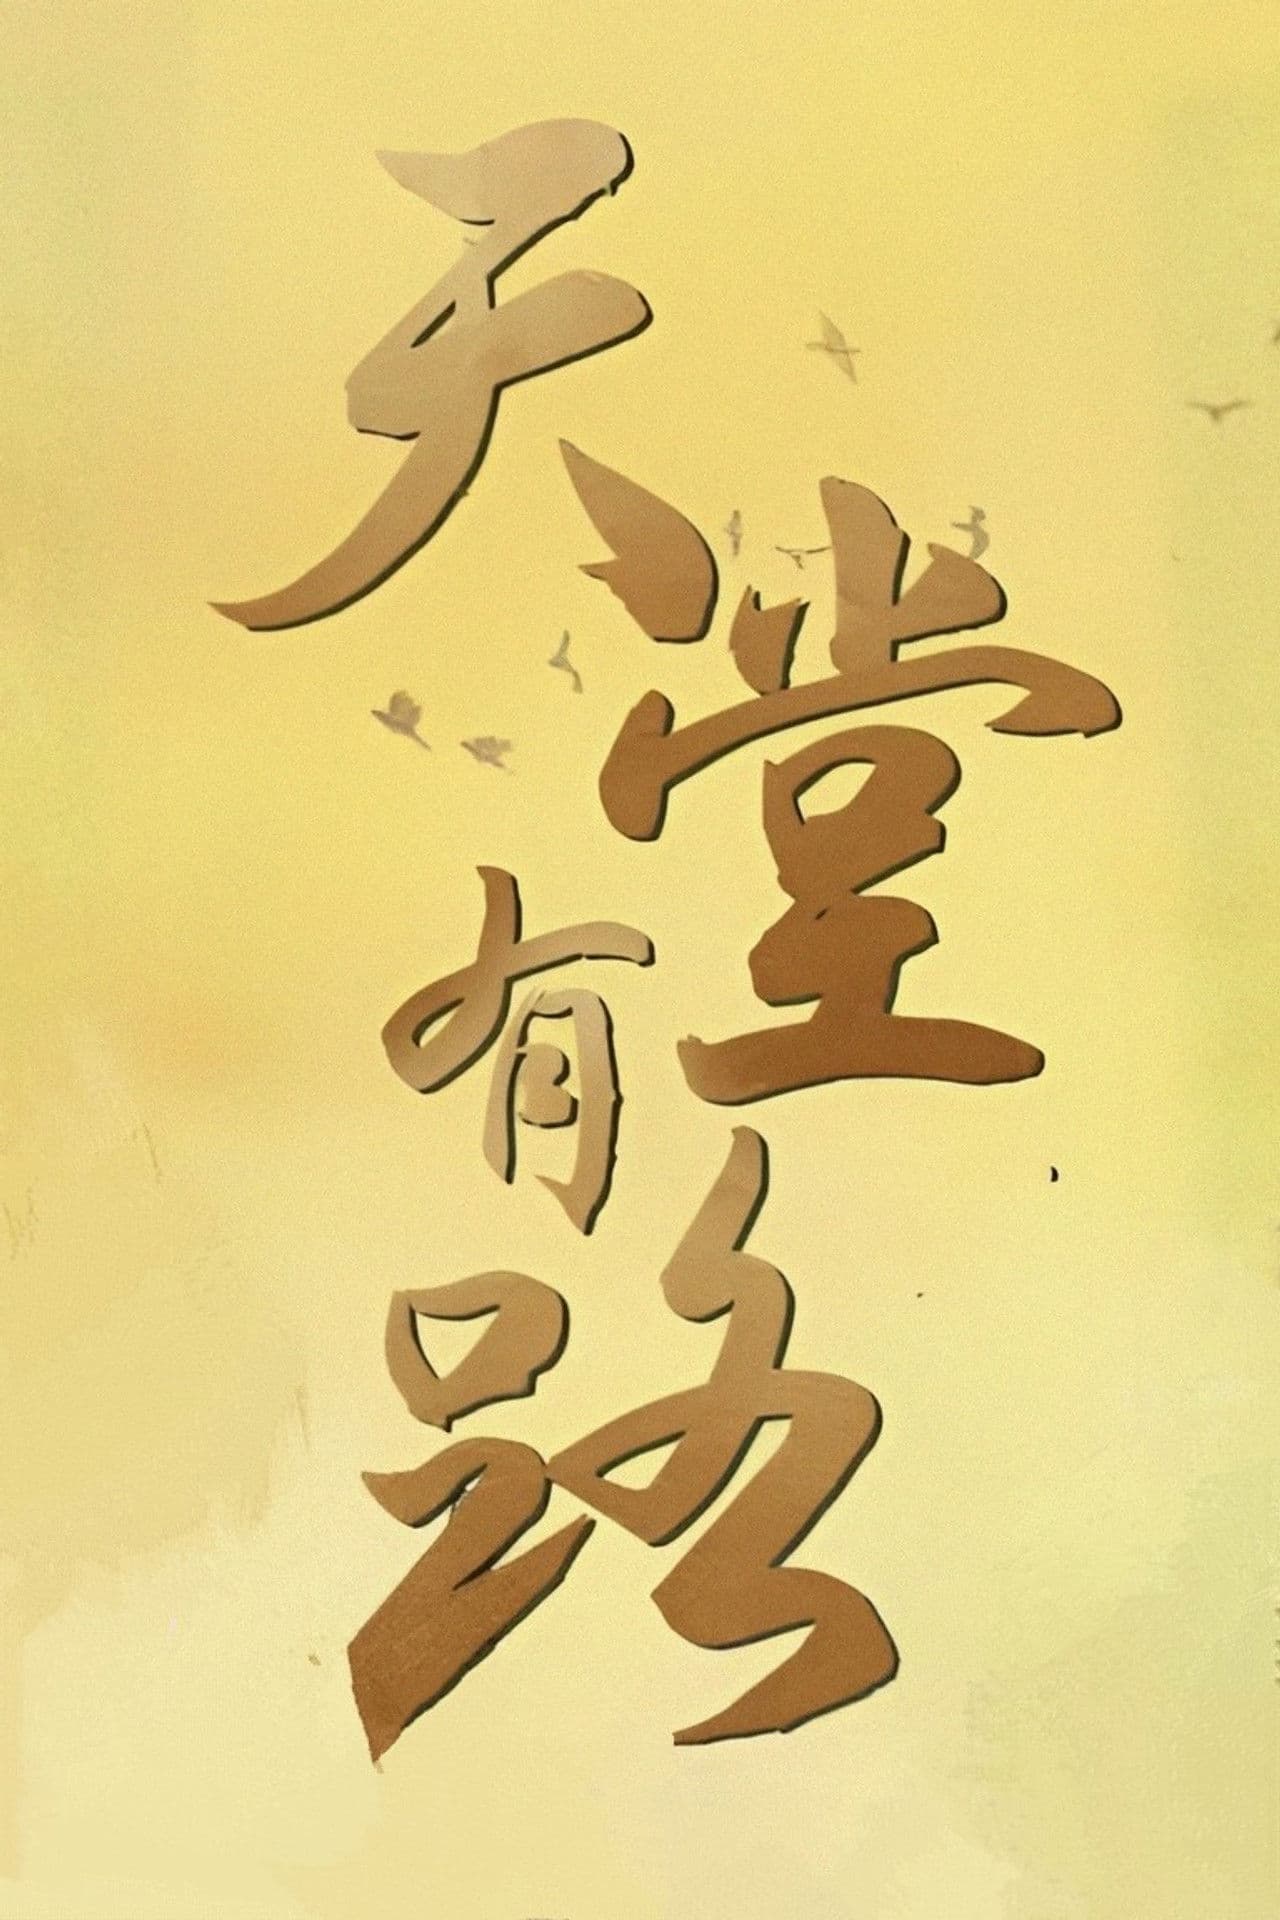 天堂有路